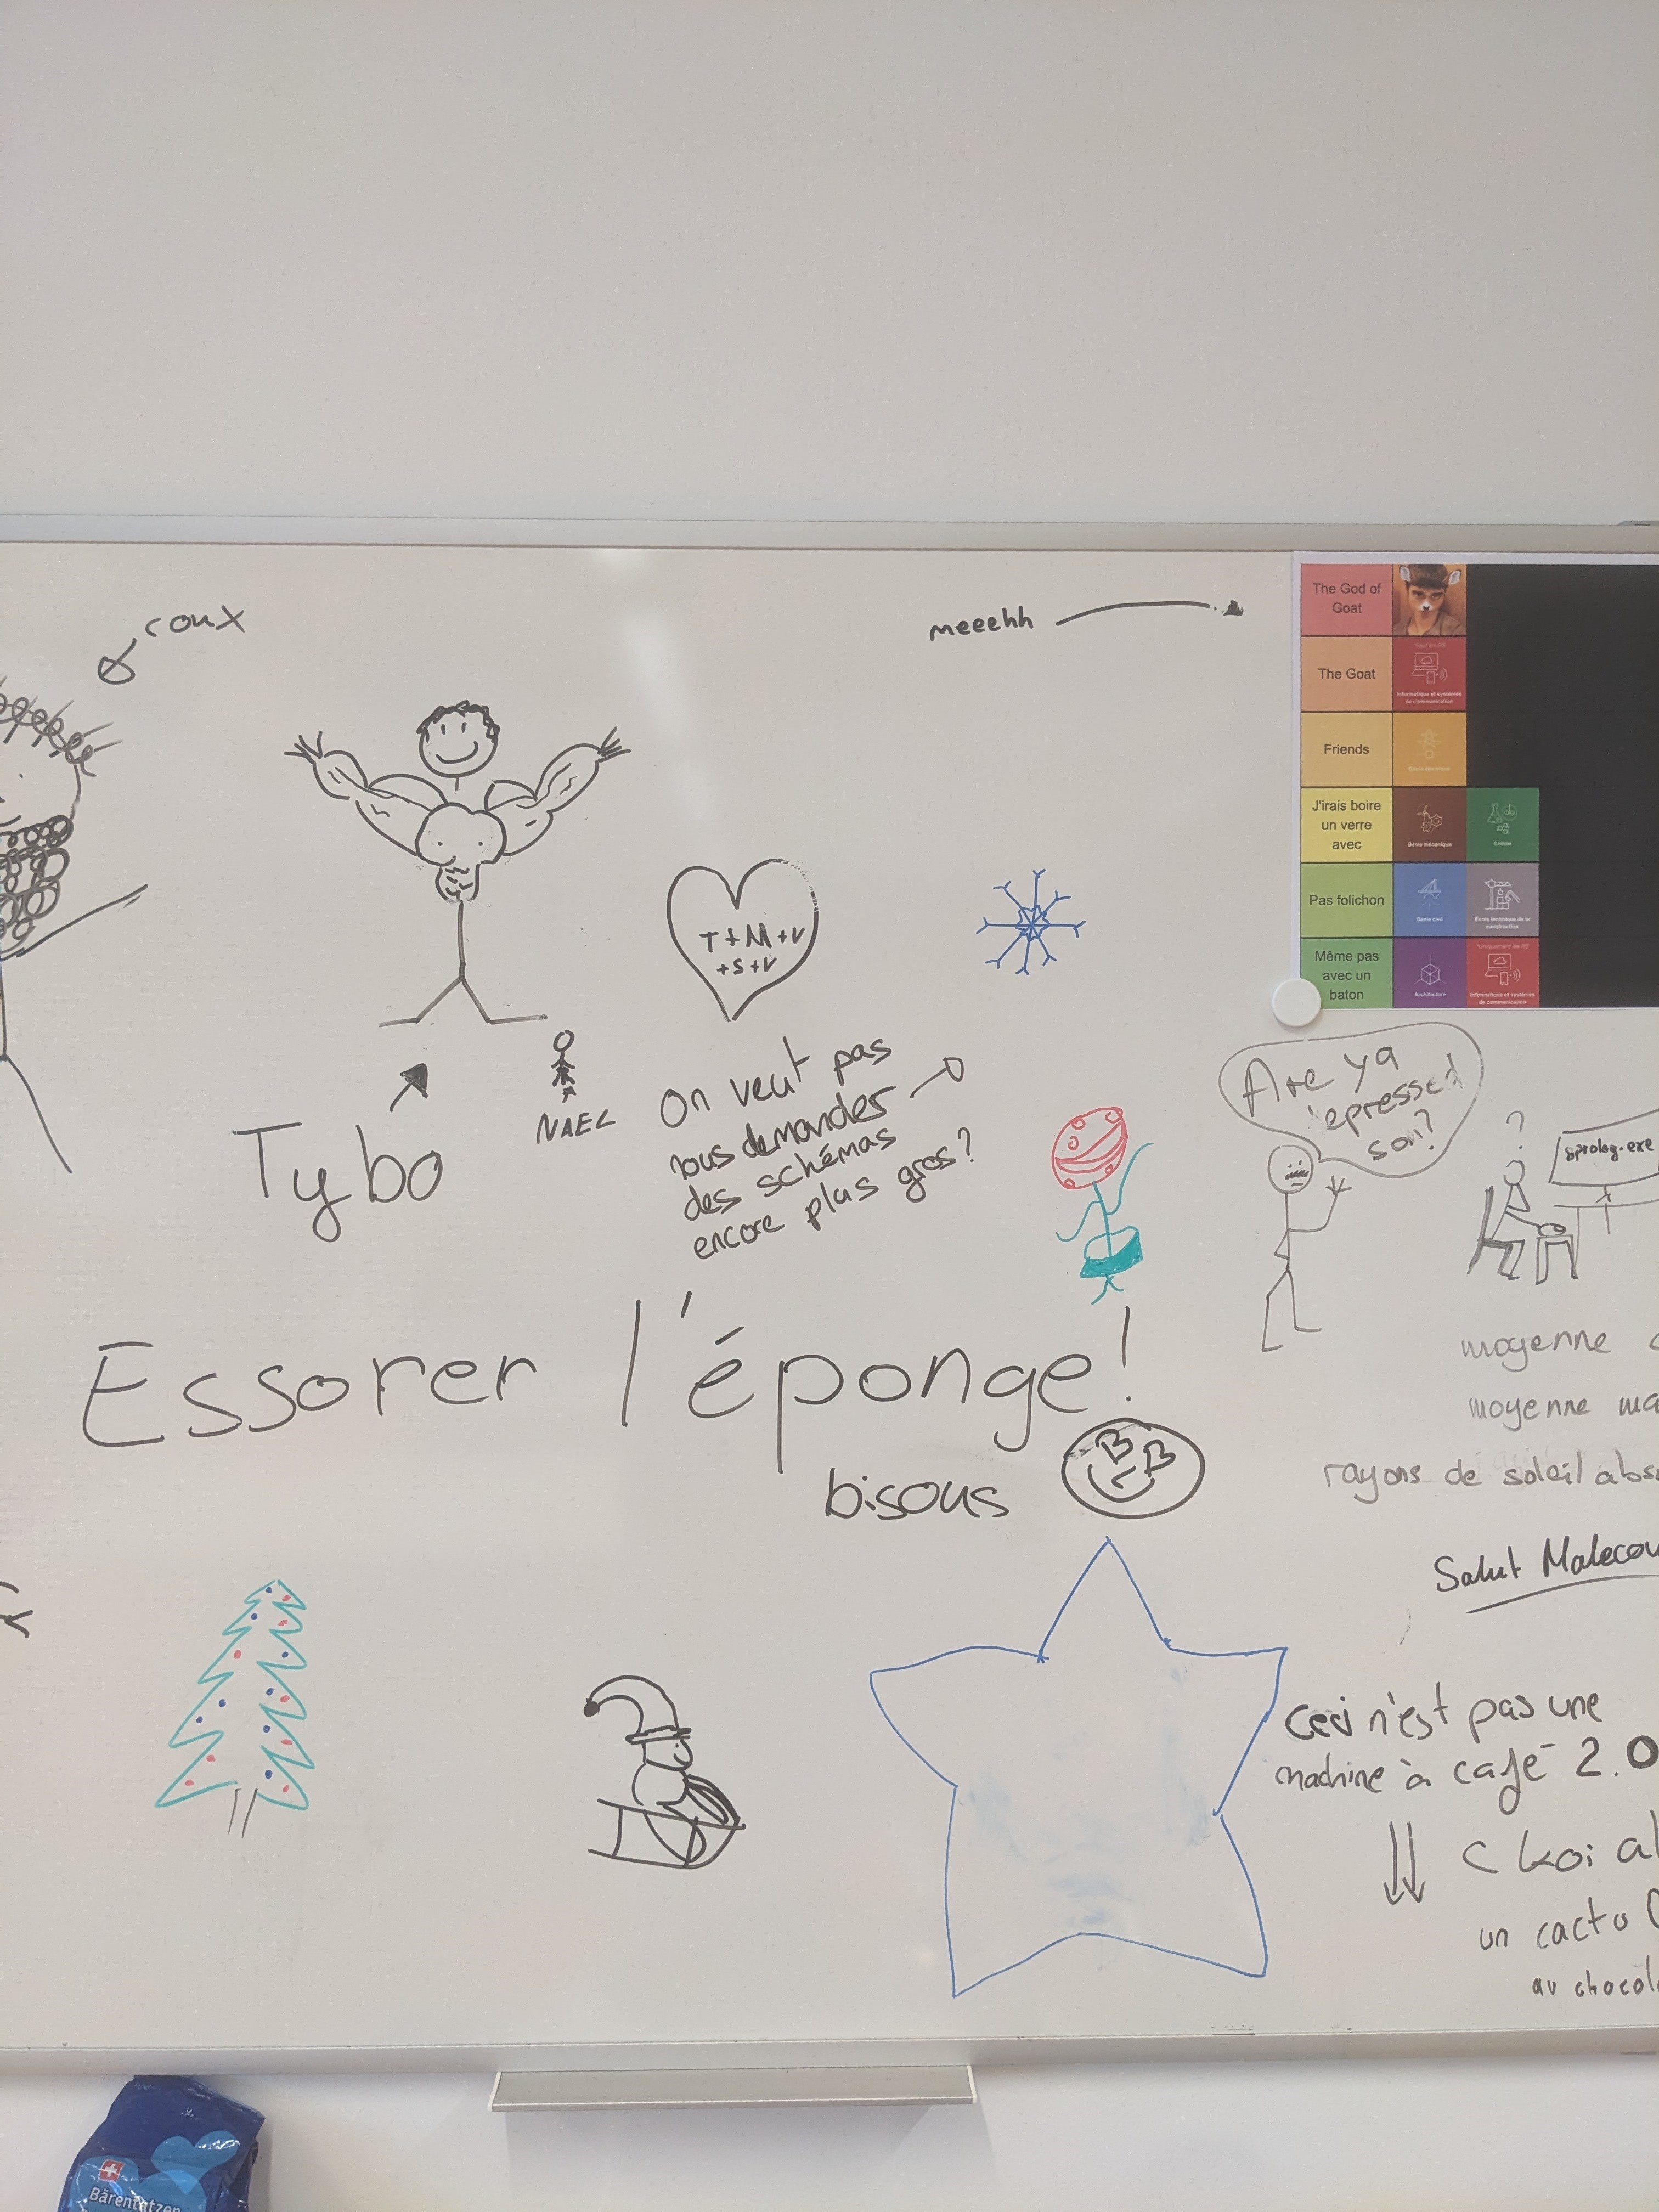 roux
meeehh
The God of
Goat
The Goat
"Sauf les RS"
Informatique et systèmes
de communication
Friends
Génie électrique
J'irais boire
un verre
avec
Génie mécanique
Chimie
Pas folichon
Génie civil
École technique de la
construction
Même pas
avec un
baton
Architecture
"Uniquement les RS"
Informatique et systèmes
de communication
T+M+V
+S+V
Tybo
NAEL
On veut pas
nous demander
des schémas
encore plus gros?
Are ya
epressed
son?
?
prolog.exe
Essorer l'éponge!
bisous
B B
moyenne
moyenne ma
rayons de soleil abs
Salut Malecou
Ceci n'est pas une
machine à café 2.0
C koi al
un cacto
au chocol
Bärentatzen